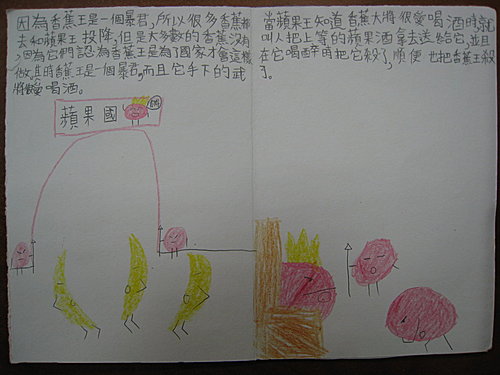 因為香蕉王是一個暴君,所以很多香蕉都
去和蘋果王投降,但是大多數的香蕉沒有
,因為它們認為香蕉王是為了國家才會這樣
做,其時香蕉王是一個暴君,而且它手下的武
將愛喝酒。
蘋果國
當蘋果王知道香蕉大將很愛喝酒時,就
叫人把上等的蘋果酒拿去送給它,並且
在它喝醉時把它殺了,順便也把香蕉王殺
了。